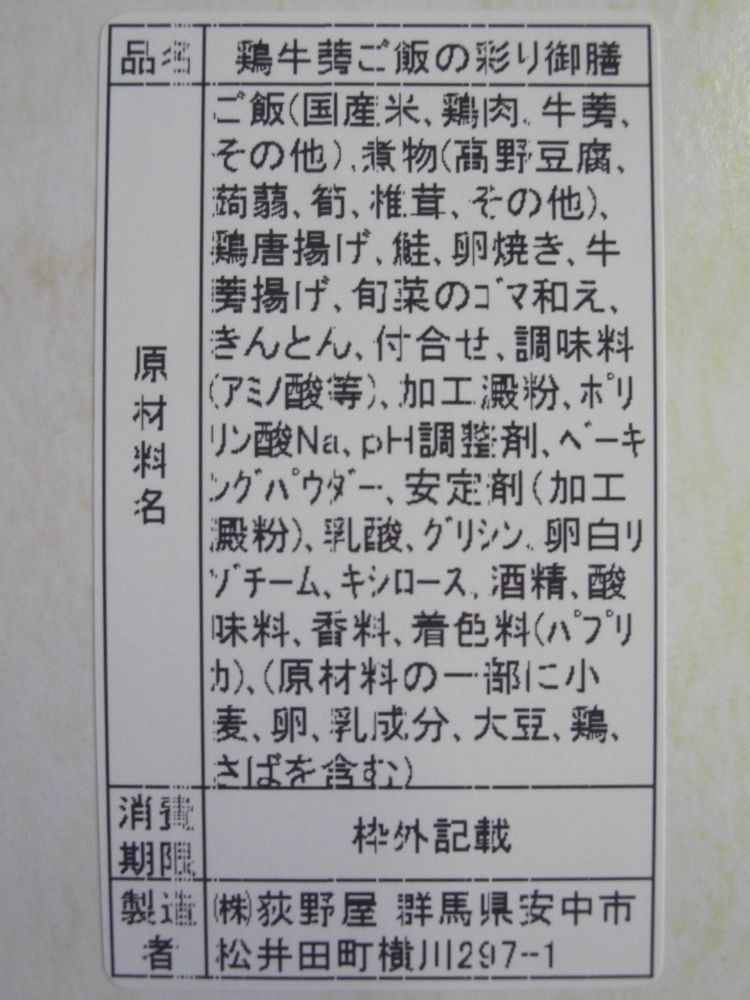 品名 鶏牛蒡ご飯の彩り御膳
原材料名
ご飯(国産米、鶏肉、牛蒡、
その他)、煮物(高野豆腐、
蒟蒻、筍、椎茸、その他)、
鶏唐揚げ、鮭、卵焼き、牛
蒡揚げ、旬菜のゴマ和え、
きんとん、付合せ、調味料
(アミノ酸等)、加工澱粉、ポリ
リン酸Na、pH調整剤、ベーキ
ングパウダー、安定剤(加工
澱粉)、乳酸、グリシン、卵白リ
ゾチーム、キシロース、酒精、酸
味料、香料、着色料(パプリ
カ)、(原材料の一部に小
麦、卵、乳成分、大豆、鶏、
さばを含む)
消費期限 枠外記載
製造者
(株)荻野屋 群馬県安中市
松井田町横川297-1